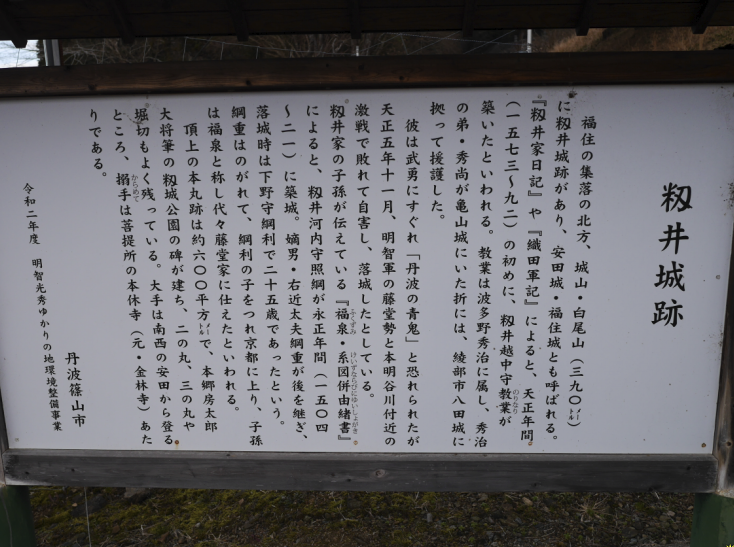 籾井城跡
福住の集落の北方、城山・白尾山(三九〇㍍)
に籾井城跡があり、安田城・福住城とも呼ばれる。
『籾井家日記』や『織田軍記』によると、天正年間
(一五七三〜九二)の初めに、籾井越中守教業が
のりなり
築いたといわれる。教業は波多野秀治に属し、秀治
の弟・秀尚が亀山城にいた折には、綾部市八田城に
拠って援護した。
彼は武勇にすぐれ「丹波の青鬼」と恐れられたが
天正五年十一月、明智軍の藤堂勢と本明谷川付近の
激戦で敗れて自害し、落城したとしている。
籾井家の子孫が伝えている『福泉・系図併由緒書』
ふくずみ けいずならびにゆいしょがき
によると、籾井河内守照綱が永正年間(一五〇四
〜二一)に築城。嫡男・右近太夫綱重が後を継ぎ、
落城時は下野守綱利で二十五歳であったという。
綱重はのがれて、綱利の子をつれ京都に上り、子孫
は福泉と称し代々藤堂家に仕えたといわれる。
頂上の本丸跡は約六〇〇平方㍍で、本郷房太郎
大将筆の籾城公園の碑が建ち、二の丸、三の丸や
堀切もよく残っている。大手は南西の安田から登る
ところ、搦手は菩提所の本休寺(元・金林寺)あた
からめて
りである。
丹波篠山市
令和二年度 明智光秀ゆかりの地環境整備事業